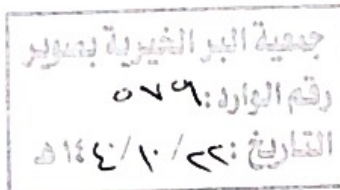 جمعية البر الخيرية بصوير
رقم الوارد: ٥٧٩
التاريخ: ٢٢/١٠/١٤٤٠هـ